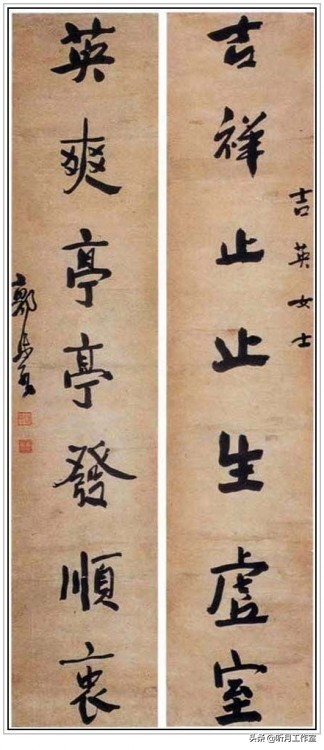 吉英女士
吉祥止止生虛室
英爽亭亭發順衷
头条 @听月工作室